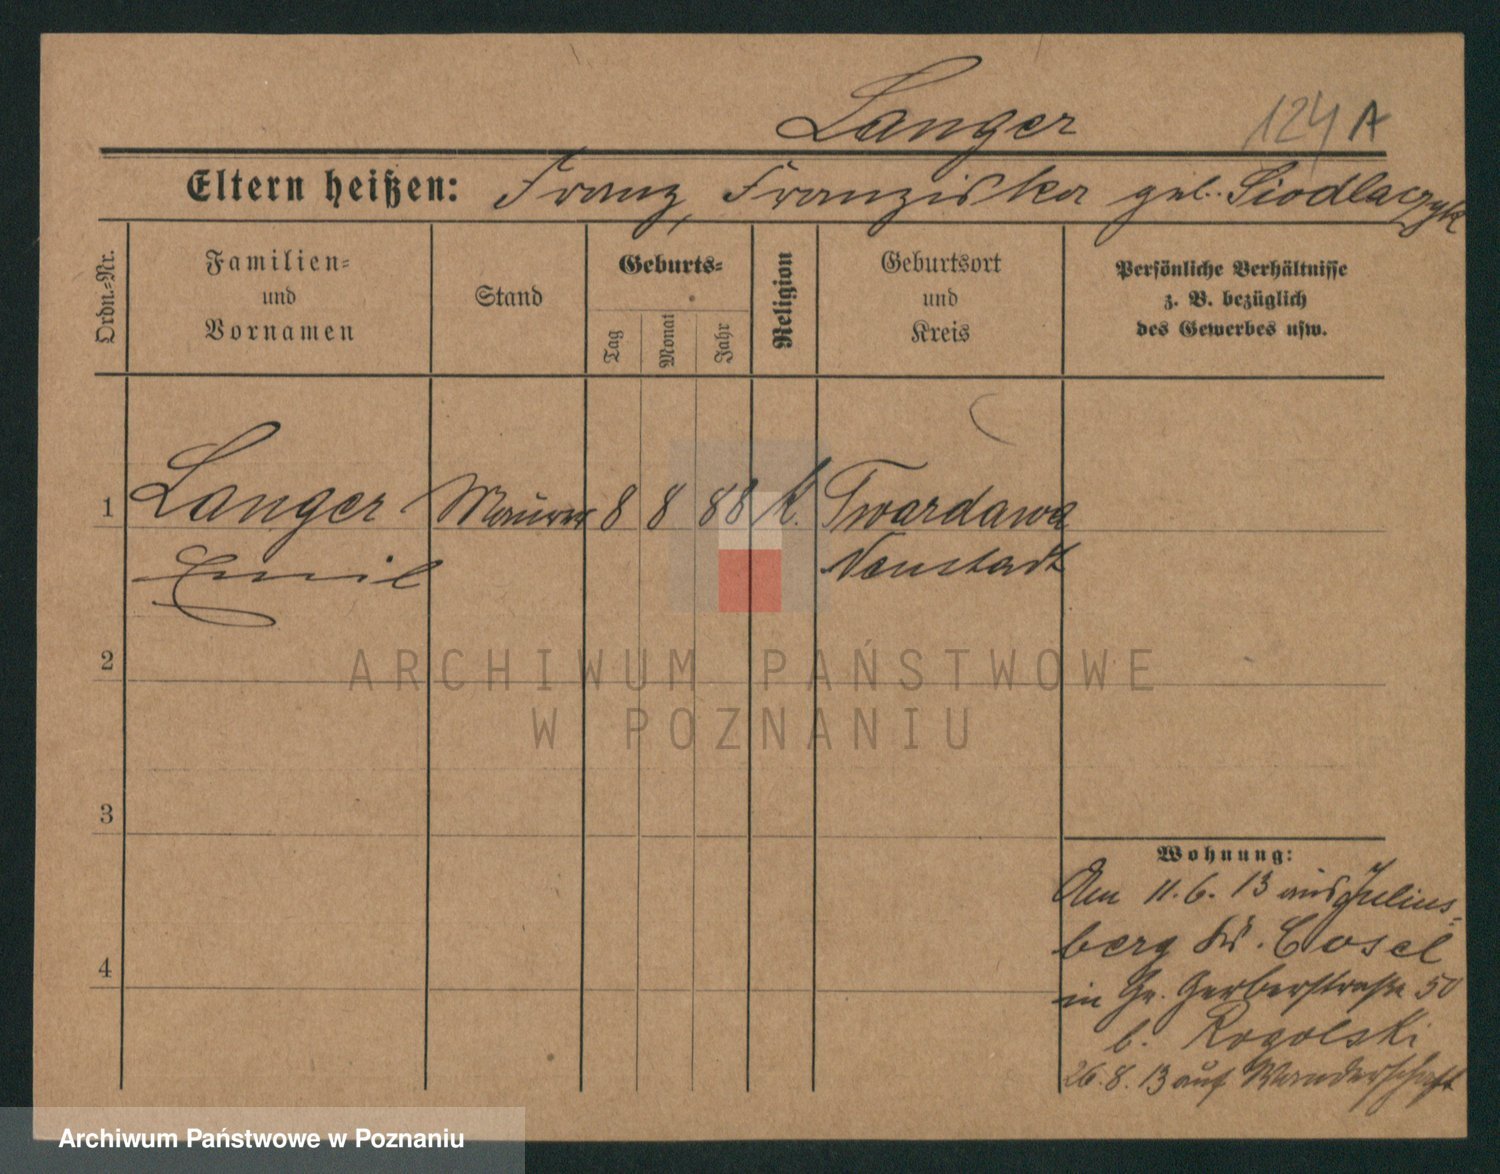 Langer 124 A
Eltern heißen: Franz, Franziska geb. Siodlaczyk
Ordn.-Nr.
Familien-
und
Vornamen
Stand
Geburts-
Tag
Monat
Jahr
Religion
Geburtsort
und
Kreis
Persönliche Verhältnisse
z. B. bezüglich
des Gewerbes usw.
1 Langer Maurer 8 8 88 k. Twardawa
Emil Neustadt
2
3
4
Wohnung:
Am 11.6.13 aus Julius-
berg Kr. Cosel
in Gr. Gerberstraße 50
b. Rogolski
26.8.13 auf Wanderschaft
ARCHIWUM PAŃSTWOWE
W POZNANIU
Archiwum Państwowe w Poznaniu